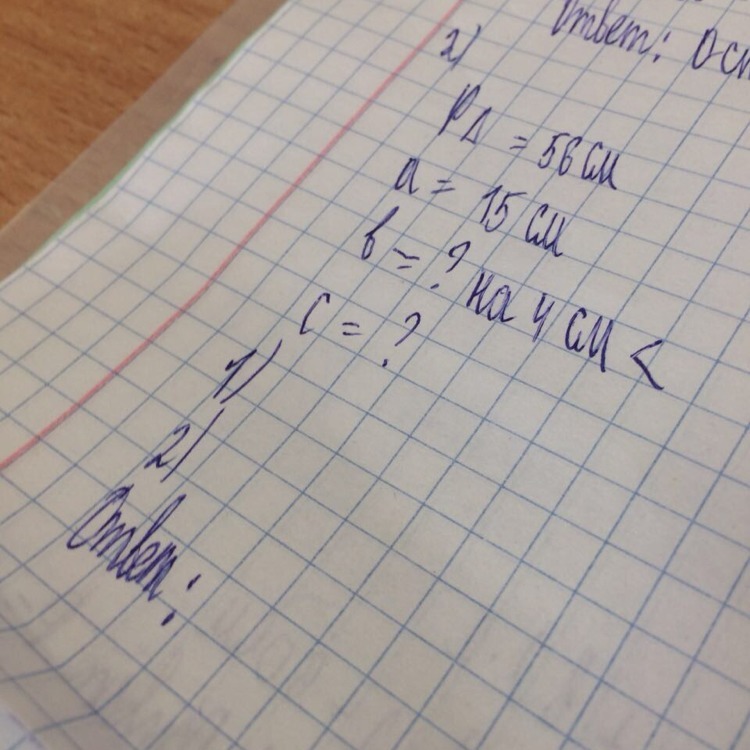 Ответ: 0 см
2)
P△ = 56 см
a = 15 см
b = ? на 4 см <
c = ?
1)
2)
Ответ: